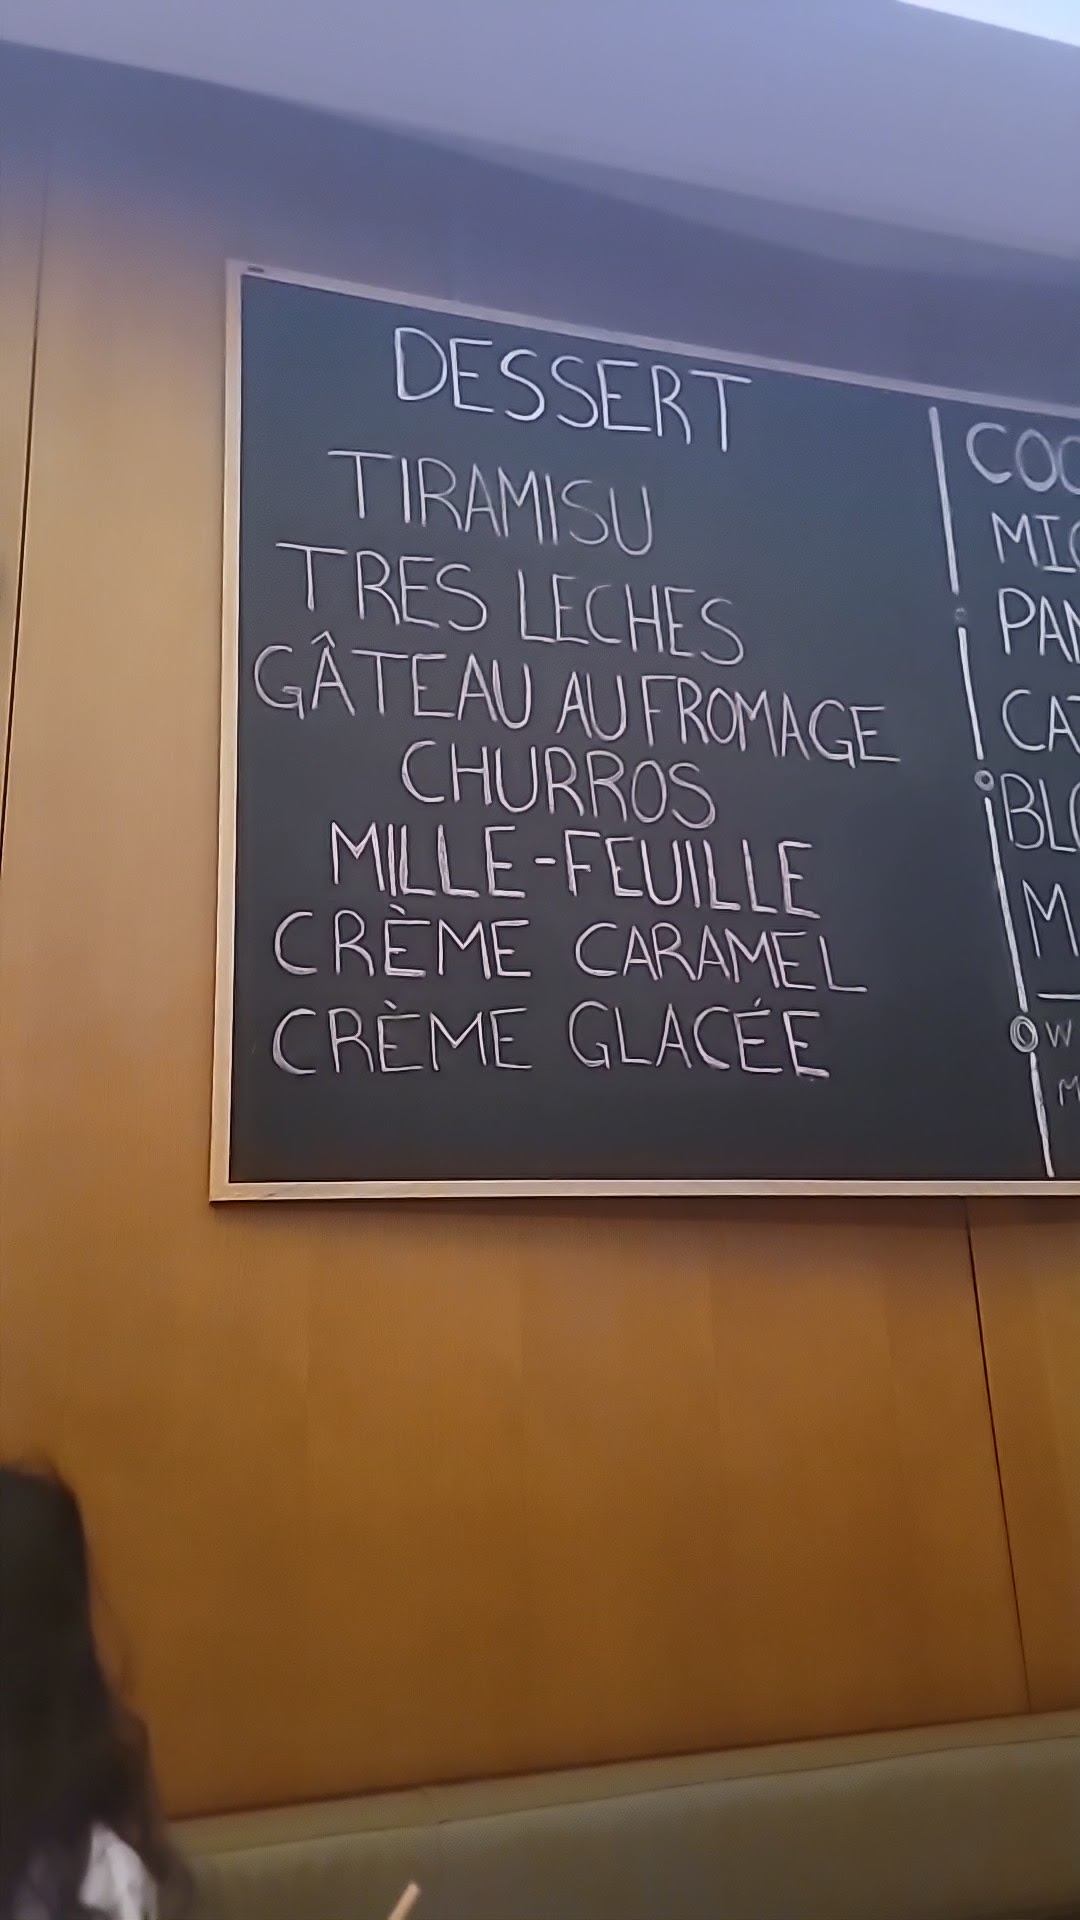 DESSERT
TIRAMISU
TRES LECHES
GÂTEAU AU FROMAGE
CHURROS
MILLE-FEUILLE
CRÈME CARAMEL
CRÈME GLACÉE